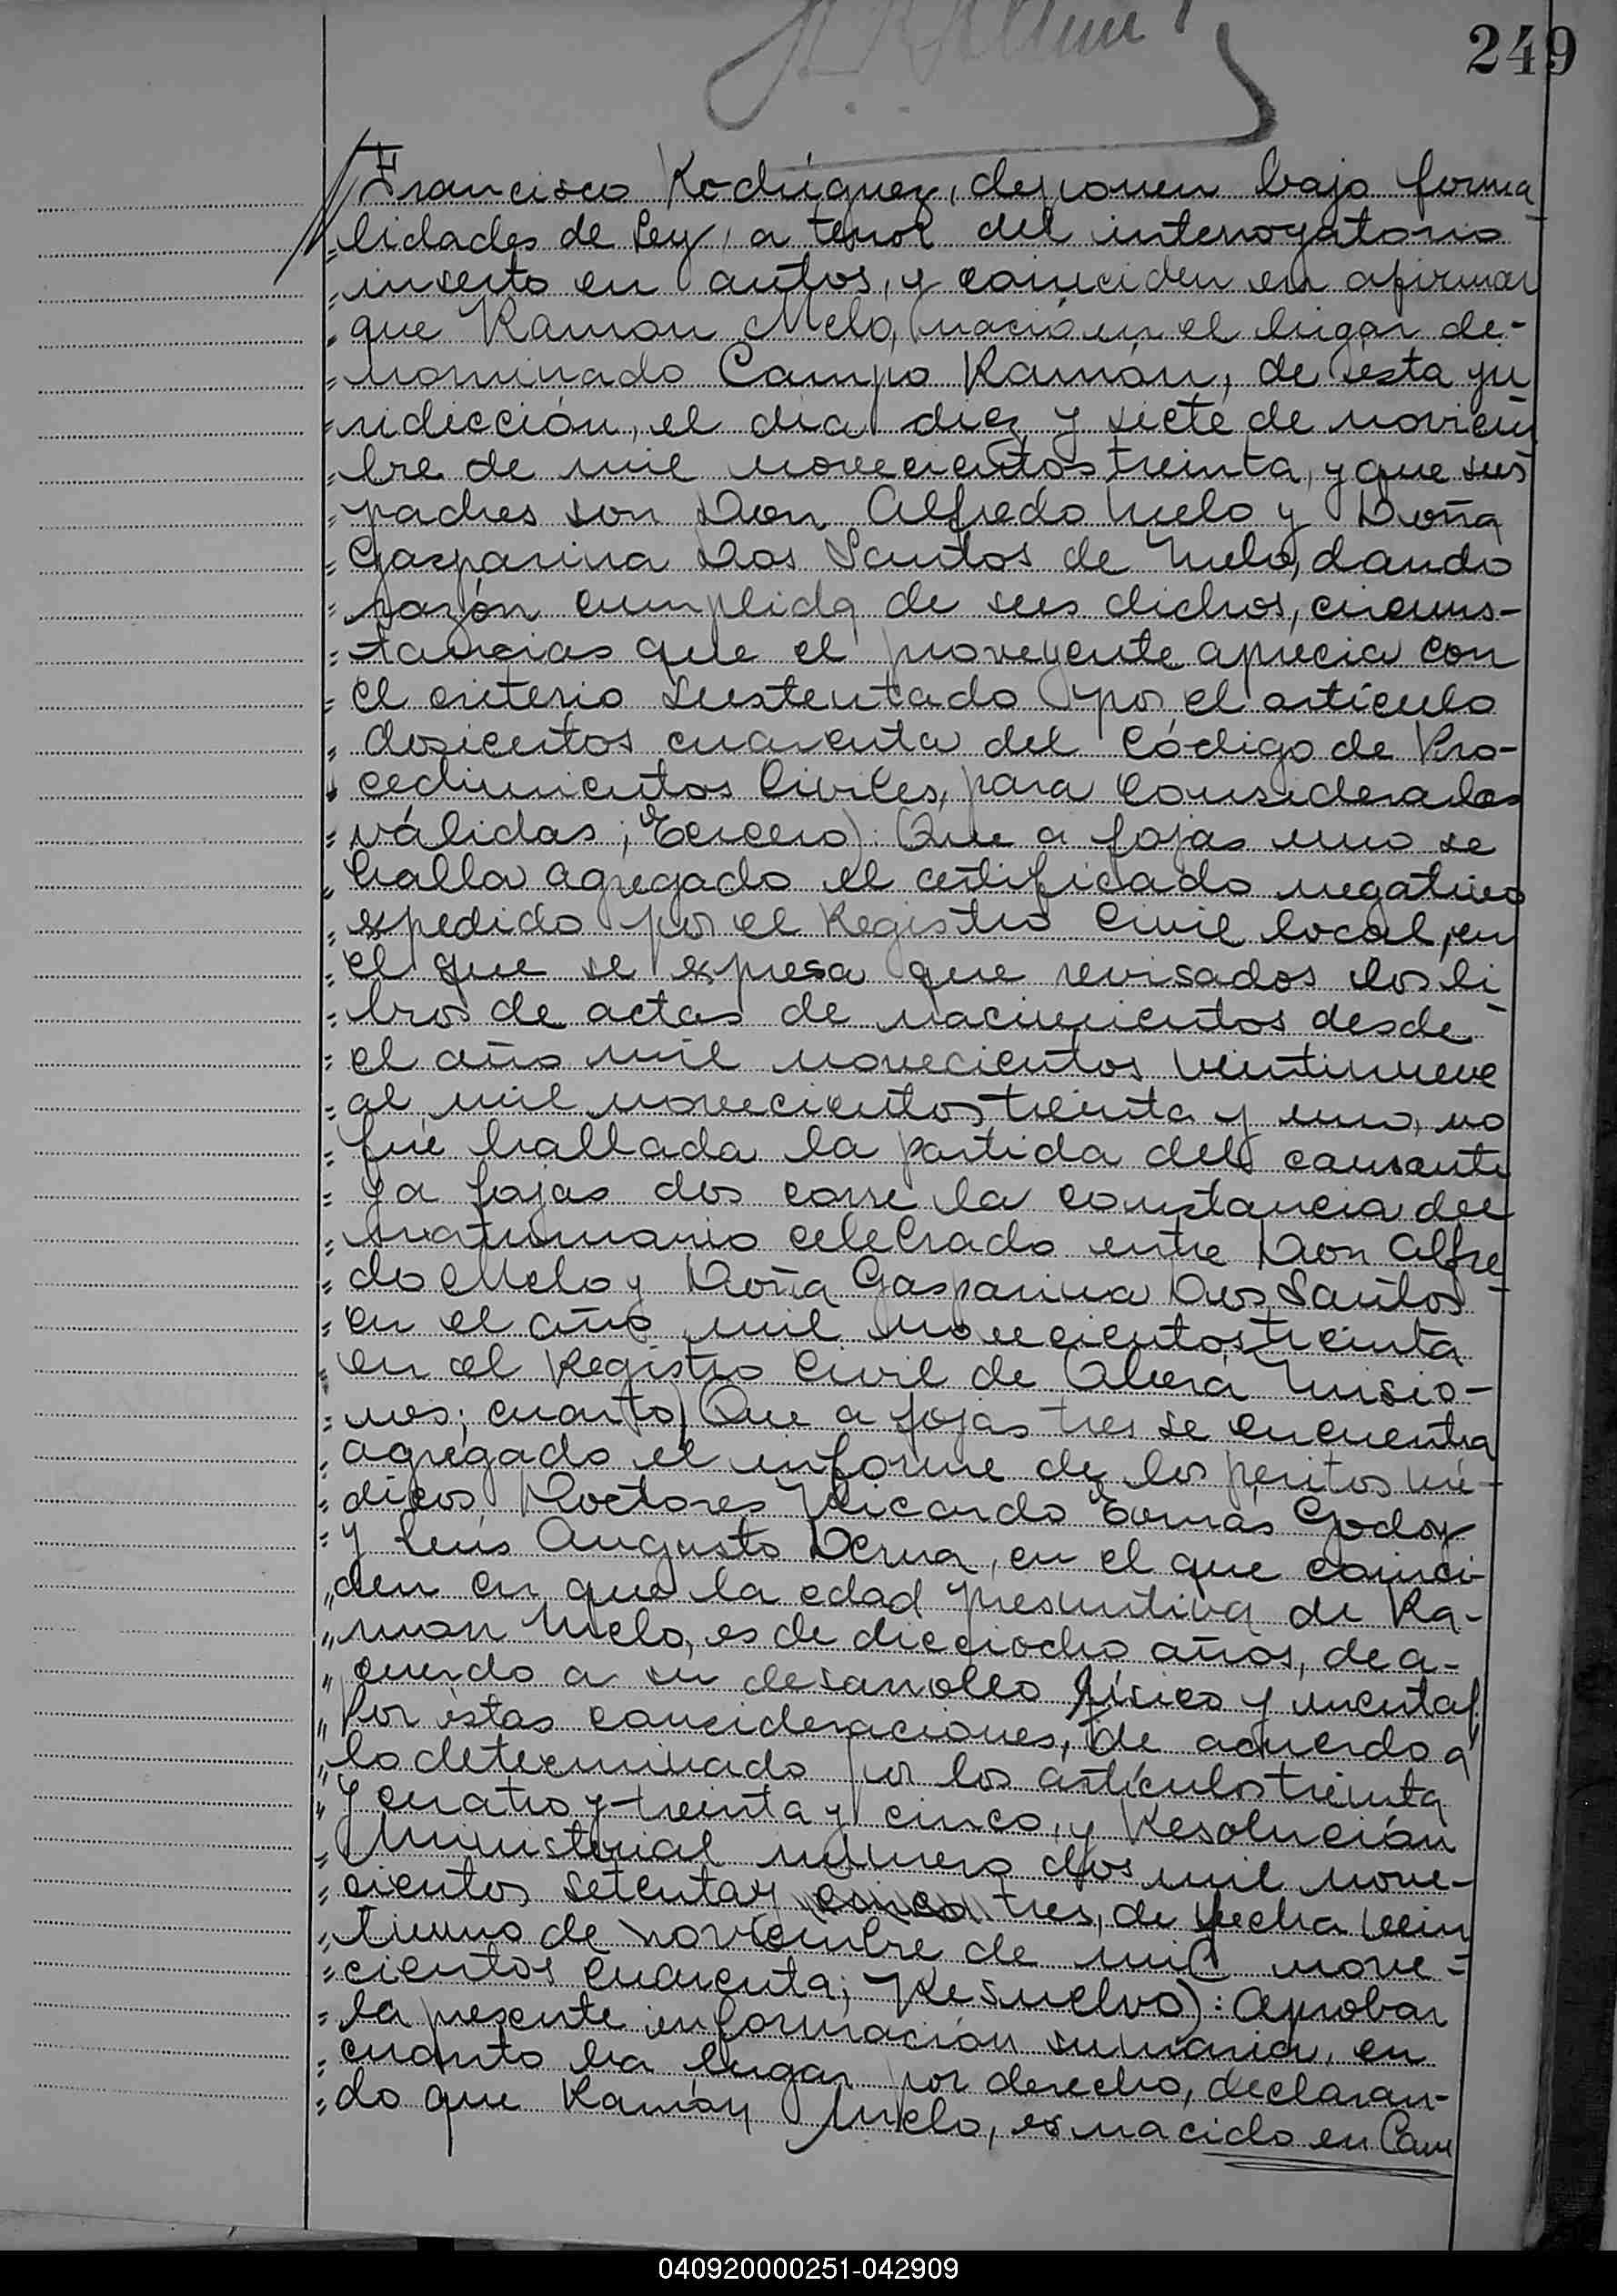 249
Francisco Rodríguez, deponen bajo forma-
"lidades de Ley, a tenor del interrogatorio
"inserto en autos, y coinciden en afirmar
"que Ramon Melo, nació en el lugar de-
"nominado Campo Ramón, de ésta ju
"ridicción, el día diez y siete de noviem
"bre de mil novecientos treinta, y que sus
"padres son Don Alfredo Melo y Doña
"Gasparina Dos Santos de Melo, dando
"razón cumplida de sus dichos, circuns-
"tancias que el proveyente aprecia con
"el criterio sustentado por el artículo
"doscientos cuarenta del Código de Pro-
"cedimientos Civiles, para considerarlas
"válidas; Tercero): Que a fojas uno se
"halla agregado el certificado negativo
"expedido por el Registro Civil local, en
"el que se expresa que revisados los li-
"bros de actas de nacimientos desde
"el año mil novecientos veintinueve
"al mil novecientos treinta y uno, no
"fué hallada la partida del causante
"y a fojas dos corre la constancia del
"matrimonio celebrado entre Don Alfre-
"do Melo y Doña Gasparina Dos Santos
"en el año mil novecientos treinta
"en el Registro Civil de Oberá Misio-
"nes; cuarto) Que a fojas tres se encuentra
"agregado el informe de los peritos mé-
"dicos, Doctores Ricardo Tomás Godoy
"y Luis Augusto Derna, en el que coinci-
"den en que la edad presuntiva de Ra-
"mon Melo, es de dieciocho años, de a-
"cuerdo a su desarrollo físico y mental.
"Por éstas consideraciones, de acuerdo a
"lo determinado por los artículos treinta
"y cuatro y treinta y cinco, y Resolución
"Ministerial número dos mil nove-
"cientos setenta y cinco tres, de fecha vein
"tiuno de noviembre de mil nove-
"cientos cuarenta; Resuelvo): Aprobar
"la presente información sumaria, en
"cuanto ha lugar por derecho, declaran-
"do que Ramón Melo, es nacido en Cam
040920000251-042909